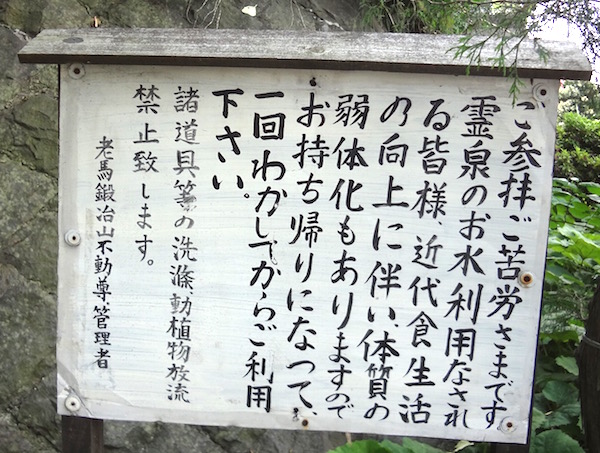 ご参拝ご苦労さまです
霊泉のお水利用なされ
る皆様、近代食生活
の向上に伴い、体質の
弱体化もありますので
お持ち帰りになって、
一回わかしてからご利用
下さい。
諸道具等の洗滌、動植物放流
禁止致します。
老馬鍛冶山不動尊、管理者